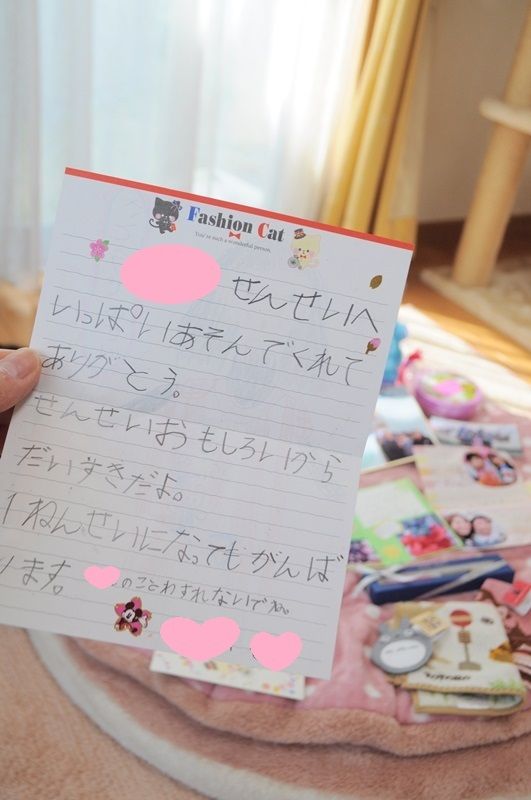 Fashion Cat
You're such a wonderful person.
せんせいへ
いっぱいあそんでくれて
ありがとう。
せんせいおもしろいから
だいすきだよ。
1ねんせいになってもがんば
ります。のことわすれないでね。